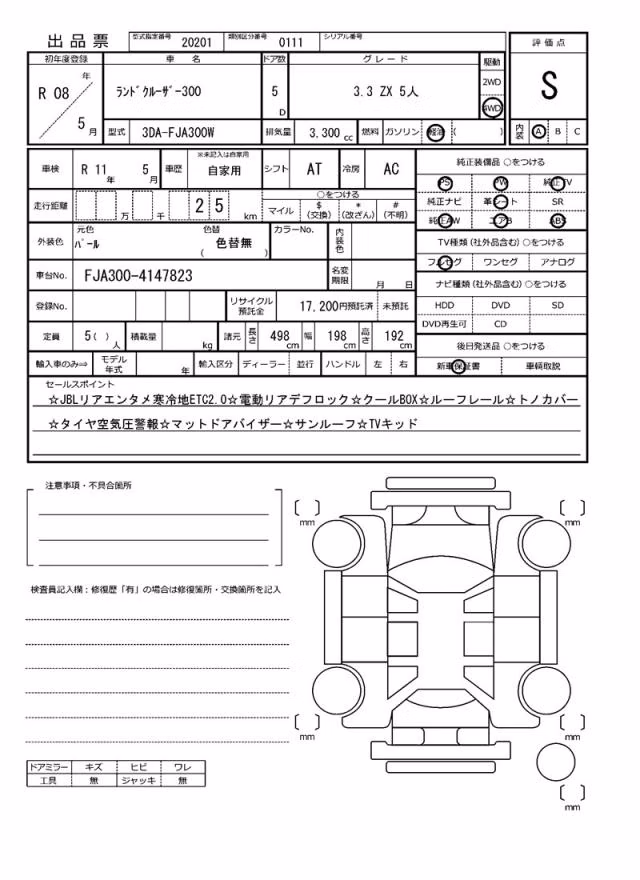 出品票 型式指定番号 20201 類別区分番号 0111 シリアル番号
初年度登録 車名 ドア数 グレード 駆動 評価点
R 08 年 5 月 ﾗﾝﾄﾞｸﾙｰｻﾞｰ-300 5 D 3.3 ZX 5人 2WD 4WD S
型式 3DA-FJA300W 排気量 3,300 cc 燃料 ガソリン 軽油 ( ) 内装 A B C
車検 R 11 年 5 月 車歴 ※未記入は自家用 自家用 シフト AT 冷房 AC
純正装備品 ○をつける
PS PW 純正TV
純正ナビ 革シート SR
純正AW エアB ABS
走行距離 万 千 2 5 km ○をつける マイル $ (交換) * (改ざん) # (不明)
TV種類 (社外品含む) ○をつける
フルセグ ワンセグ アナログ
外装色 元色 ﾊﾟｰﾙ 色替 色替無 ( ) カラーNo. 内装色
車台No. FJA300-4147823 名変期限 月 日
ナビ種類 (社外品含む) ○をつける
HDD DVD SD
DVD再生可 CD
登録No. リサイクル預託金 17,200円預託済 未預託
定員 5( ) 人 積載量 kg 諸元 長さ 498 cm 幅 198 cm 高さ 192 cm
後日発送品 ○をつける
新車保証書 車輌取説
輸入車のみ⇒ モデル年式 年 輸入区分 ディーラー 並行 ハンドル 左 右
セールスポイント
☆JBLリアエンタメ寒冷地ETC2.0☆電動リアデフロック☆クールBOX☆ルーフレール☆トノカバー
☆タイヤ空気圧警報☆マットドアバイザー☆サンルーフ☆TVキッド
注意事項・不具合箇所
検査員記入欄：修復歴「有」の場合は修復箇所・交換箇所を記入
mm
mm
mm
mm
mm
ドアミラー キズ ヒビ ワレ
工具 無 ジャッキ 無